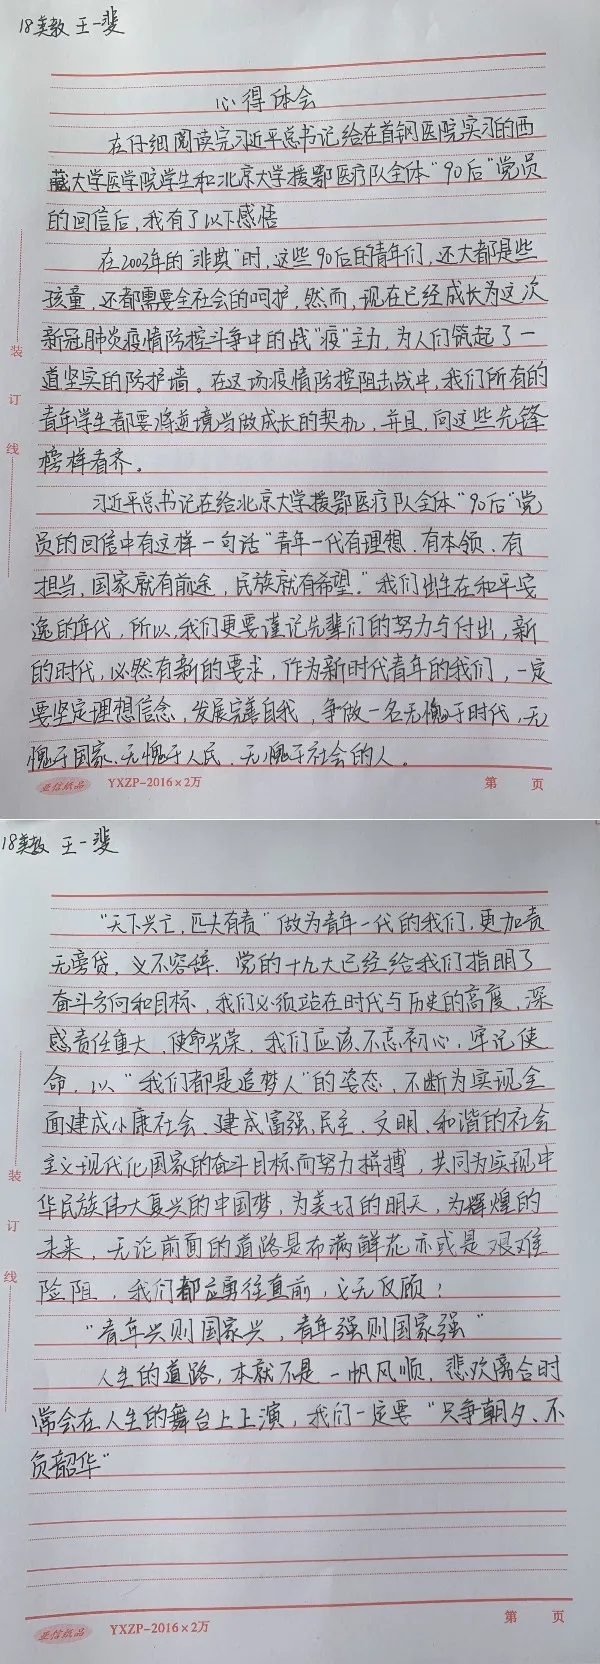 18英教 王一斐
心得体会
在仔细阅读完习近平总书记给在首钢医院实习的西
藏大学医学院学生和北京大学援鄂医疗队全体“90后”党员
的回信后，我有了以下感悟
在2003年的“非典”时，这些90后的青年们，还大都是些
孩童，还都需要全社会的呵护，然而，现在已经成长为这次
新冠肺炎疫情防控斗争中的战“疫”主力，为人们筑起了一
道坚实的防护墙。在这场疫情防控阻击战中，我们所有的
青年学生都要将逆境当做成长的契机，并且，向这些先锋
榜样看齐。
习近平总书记在给北京大学援鄂医疗队全体“90后”党
员的回信中有这样一句话“青年一代有理想、有本领、有
担当，国家就有前途，民族就有希望。”我们出生在和平安
逸的年代，所以，我们更要谨记先辈们的努力与付出，新
的时代，必然有新的要求，作为新时代青年的我们，一定
要坚定理想信念，发展完善自我，争做一名无愧于时代，无
愧于国家、无愧于人民、无愧于社会的人。
装
订
线
亚信纸品 YXZP-2016×2万 第 页
18英教 王一斐
“天下兴亡，匹夫有责”做为青年一代的我们，更加责
无旁贷，义不容辞。党的十九大已经给我们指明了
奋斗方向和目标，我们必须站在时代与历史的高度，深
感责任重大，使命光荣，我们应该、不忘初心，牢记使
命，以“我们都是追梦人”的姿态，不断为实现全
面建成小康社会、建成富强、民主、文明、和谐的社会
主义现代化国家的奋斗目标而努力拼搏，共同为实现中
华民族伟大复兴的中国梦，为美好的明天，为辉煌的
未来，无论前面的道路是布满鲜花亦或是艰难
险阻，我们都应勇往直前，义无反顾！
“青年兴则国家兴，青年强则国家强”
人生的道路，本就不是一帆风顺，悲欢离合时
常会在人生的舞台上上演，我们一定要“只争朝夕、不
负韶华”
装
订
线
亚信纸品 YXZP-2016×2万 第 页